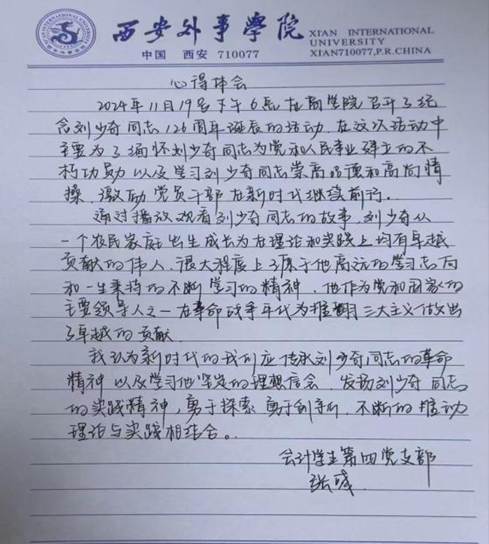 西安外事學院
XI'AN INTERNATIONAL
UNIVERSITY
中国 西安 710077
XIAN710077,P.R.CHINA
心得体会
2024年11月19号下午6点在商学院召开了纪
念刘少奇同志126周年诞辰的活动,在这次活动中
主要为了缅怀刘少奇同志为党和人民事业建立的不
朽功勋以及学习刘少奇同志崇高品德和高尚情
操,激励党员干部在新时代继续前行。
通过播放观看刘少奇同志的故事,刘少奇从
一个农民家庭出生成长为在理论和实践上均有卓越
贡献的伟人,很大程度上了源于他高远的学习志向
和一生秉持的不断学习的精神,他作为党和国家的
主要领导人之一在革命战争年代为推翻三大主义做出
了卓越的贡献.
我认为新时代的我们应传承刘少奇同志的革命
精神以及学习他坚定的理想信念,发扬刘少奇同志
的实践精神,勇于探索勇于创新,不断的推动
理论与实践相结合。
会计学生第四党支部